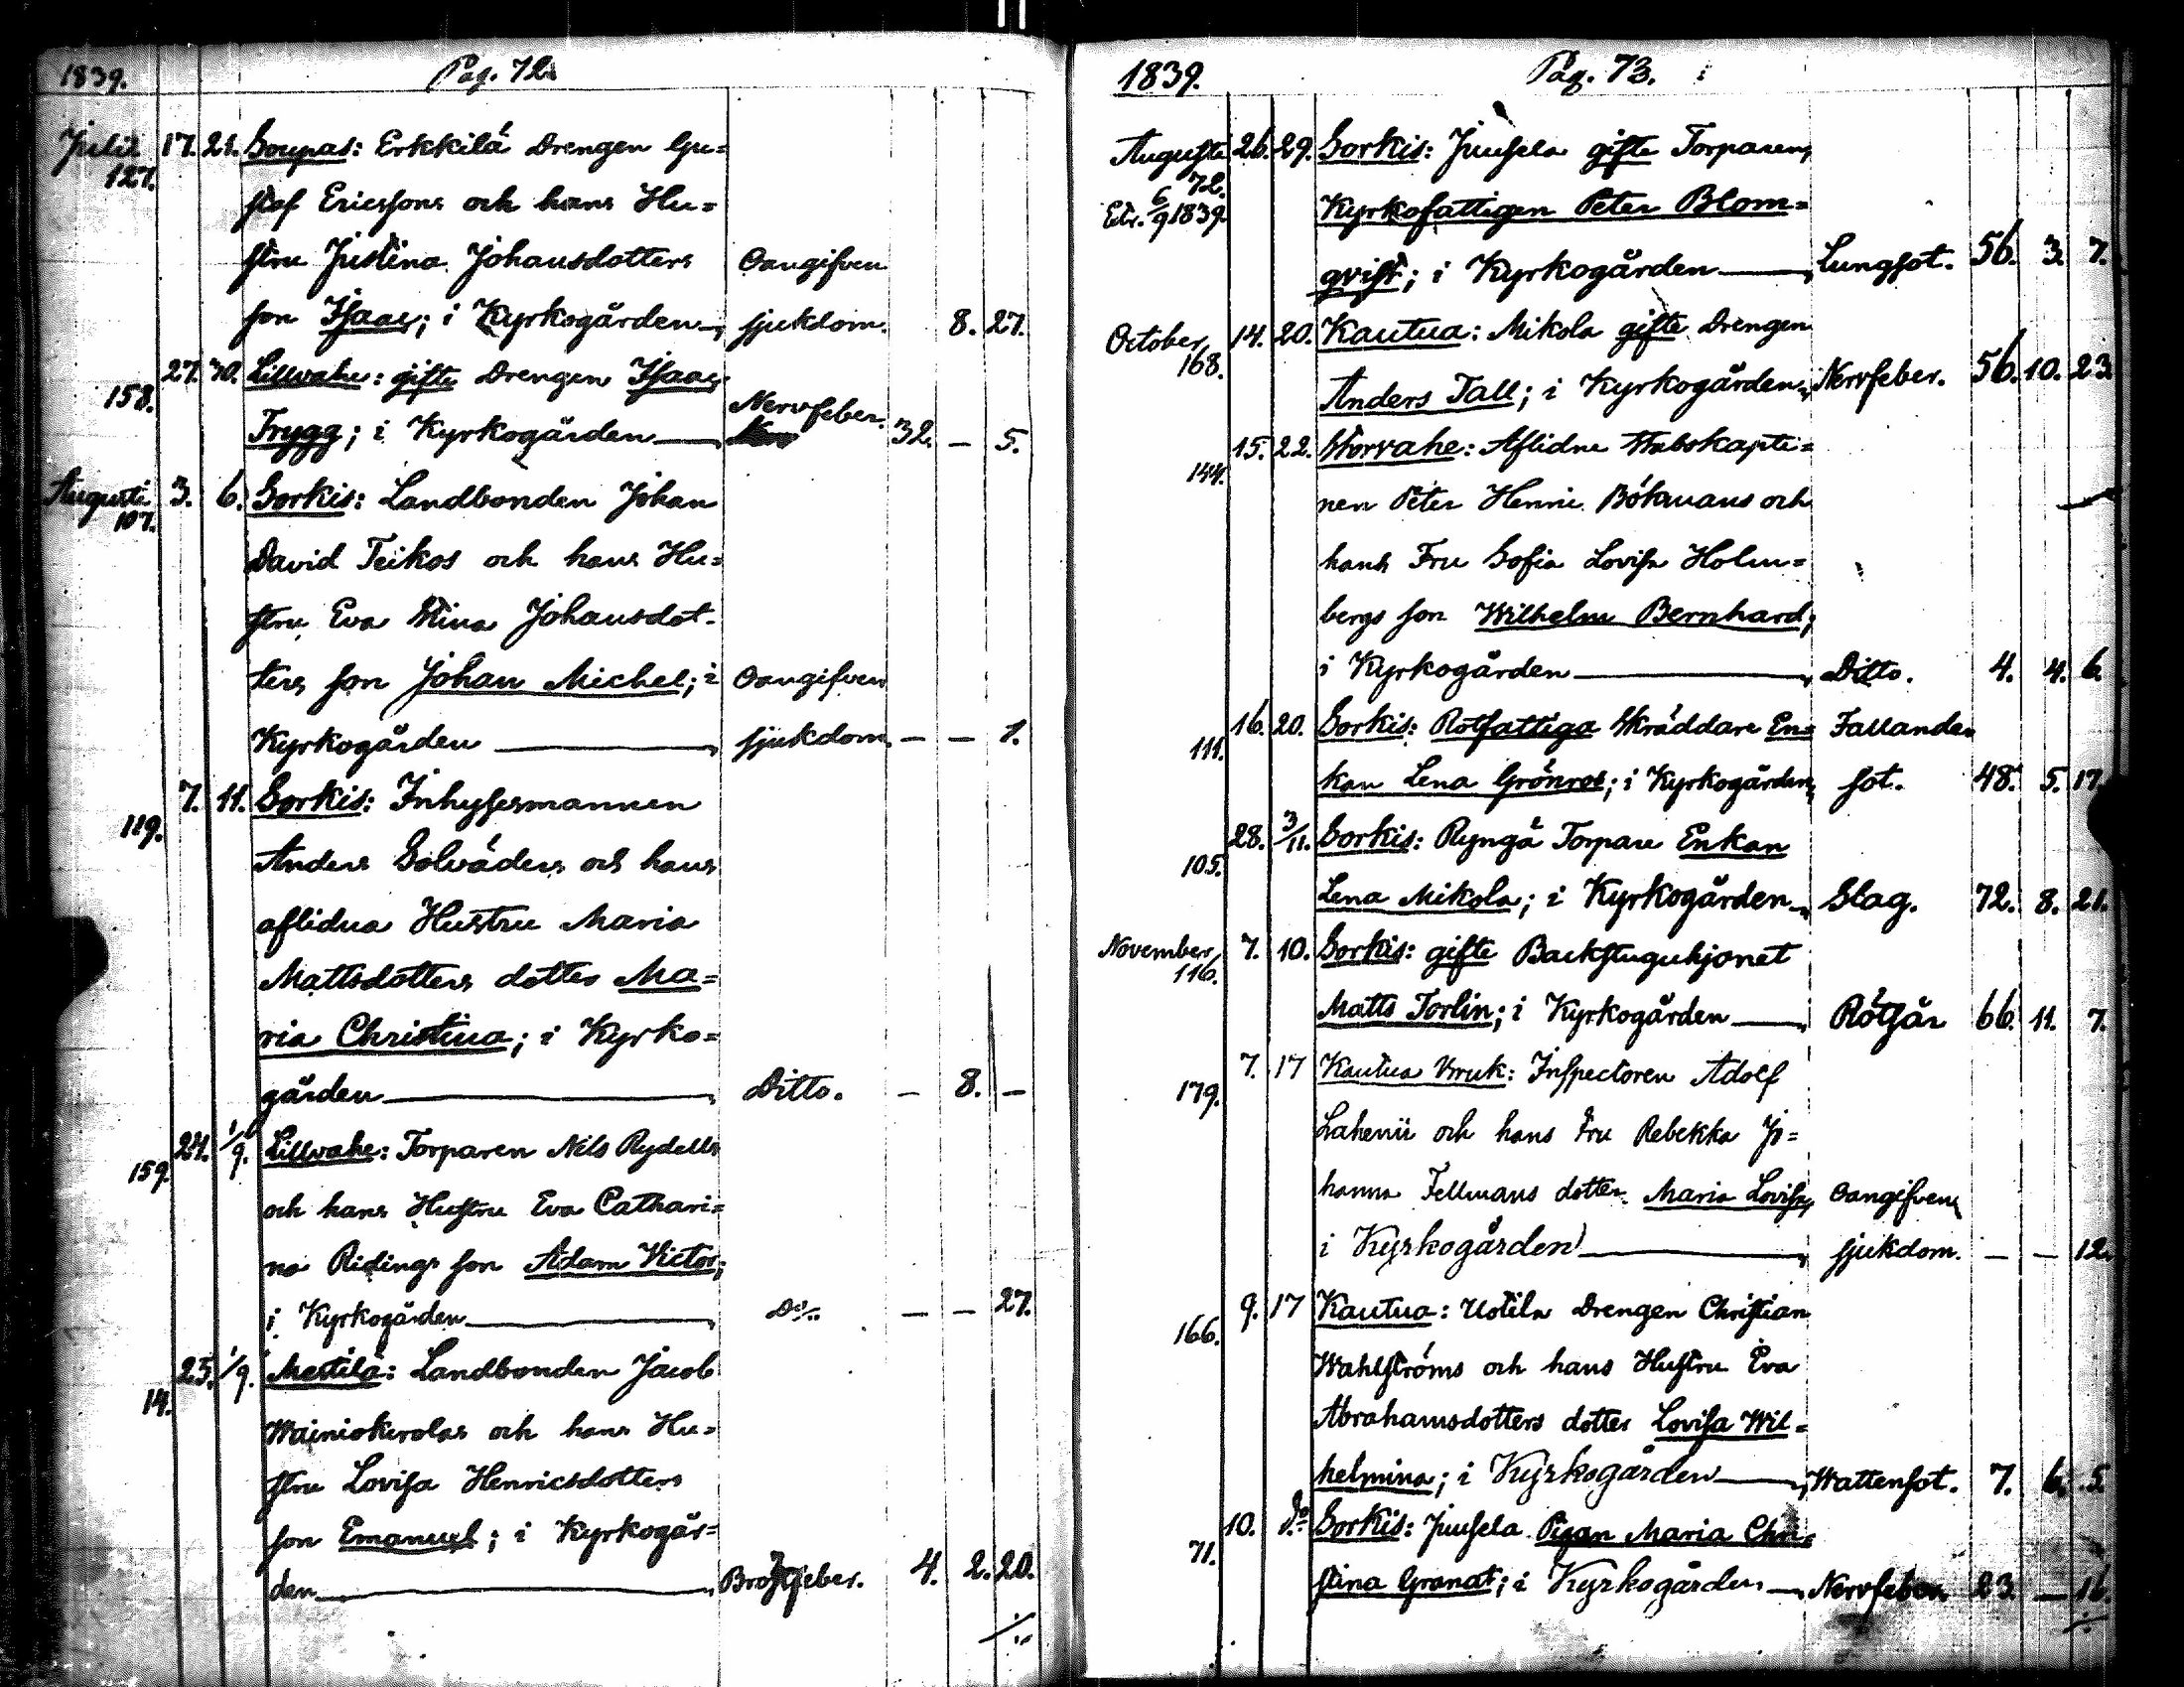 1839. Pag. 72.
Julii 17. 21. Soupas: Erkkilä Drengen Gu=
127.
staf Ericssons och hans Hu=
stru Justina Johansdotters Oangifven
son Isaac; i Kyrkogården sjukdom. 8. 27.
27. 30. Lillwahe: gifte Drengen Isaac
158. Nervfeber.
Trygg; i Kyrkogården 32. — 5.
Augusti 3. 6. Sorkis: Landbonden Johan
107.
David Teikos och hans Hu=
stru Eva Stina Johansdot-
ters son Johan Michel; i Oangifven
Kyrkogården sjukdom. — — 1.
7. 11. Sorkis: Inhysesmannen
119.
Anders Solväders och hans
aflidna Hustru Maria
Mattsdotters dotter Ma=
ria Christina; i Kyrko=
gården Ditto. — 8. —
24. 1/9. Lillwahe: Torparen Nils Rydells
159.
och hans Hustru Eva Cathari=
na Ridings son Adam Victor;
i Kyrkogården Do — — 27.
25. 1/9. Mestilä: Landbonden Jacob
14.
Wainiokrolas och hans Hu=
stru Lovisa Henricsdotters
son Emanuel; i Kyrkogår=
den Bröstfeber. 4. 2. 20.
1839. Pag. 73.
Augusti 26. 29. Sorkis: Juusela gifte Torparen,
72.
6/9 1839. Kyrkofattigen Peter Blom=
qvist; i Kyrkogården Lungsot. 56. 3. 7.
October 14. 20. Kautua: Mikola gifte Drengen
168.
Anders Tall; i Kyrkogården Nervfeber. 56. 10. 23.
15. 22. Storvahe: Aflidne Stabskapte=
144.
nen Peter Henric Bökmans och
hans Fru Sofia Lovisa Holm=
bergs son Wilhelm Bernhard;
i Kyrkogården Ditto. 4. 4. 6.
16. 20. Sorkis: Rotfattiga Skräddare En= Fallande
111.
kan Lena Grönros; i Kyrkogården, sot. 48. 5. 17.
28. 3/11. Sorkis: Ryngä Torpare Enkan
105.
Lena Mikola; i Kyrkogården Slag. 72. 8. 21.
November 7. 10. Sorkis: gifte Backstuguhjonet
116.
Matts Torlin; i Kyrkogården Rötsår 66. 11. 7.
7. 17 Kautua Bruk: Inspectoren Adolf
179.
Lahenii och hans Fru Rebekka Jo=
hanna Fellmans dotter Maria Lovisa, Oangifven
i Kyrkogården sjukdom. — — 12.
9. 17 Kautua: Uotila Drengen Christian
166.
Wahlströms och hans Hustru Eva
Abrahamsdotters dotter Lovisa Wil=
helmina; i Kyrkogården Wattensot. 7. 6. 5.
10. do Sorkis: Juusela Pigan Maria Chri=
71.
stina Granat; i Kyrkogården Nervfeber 23. — 16.